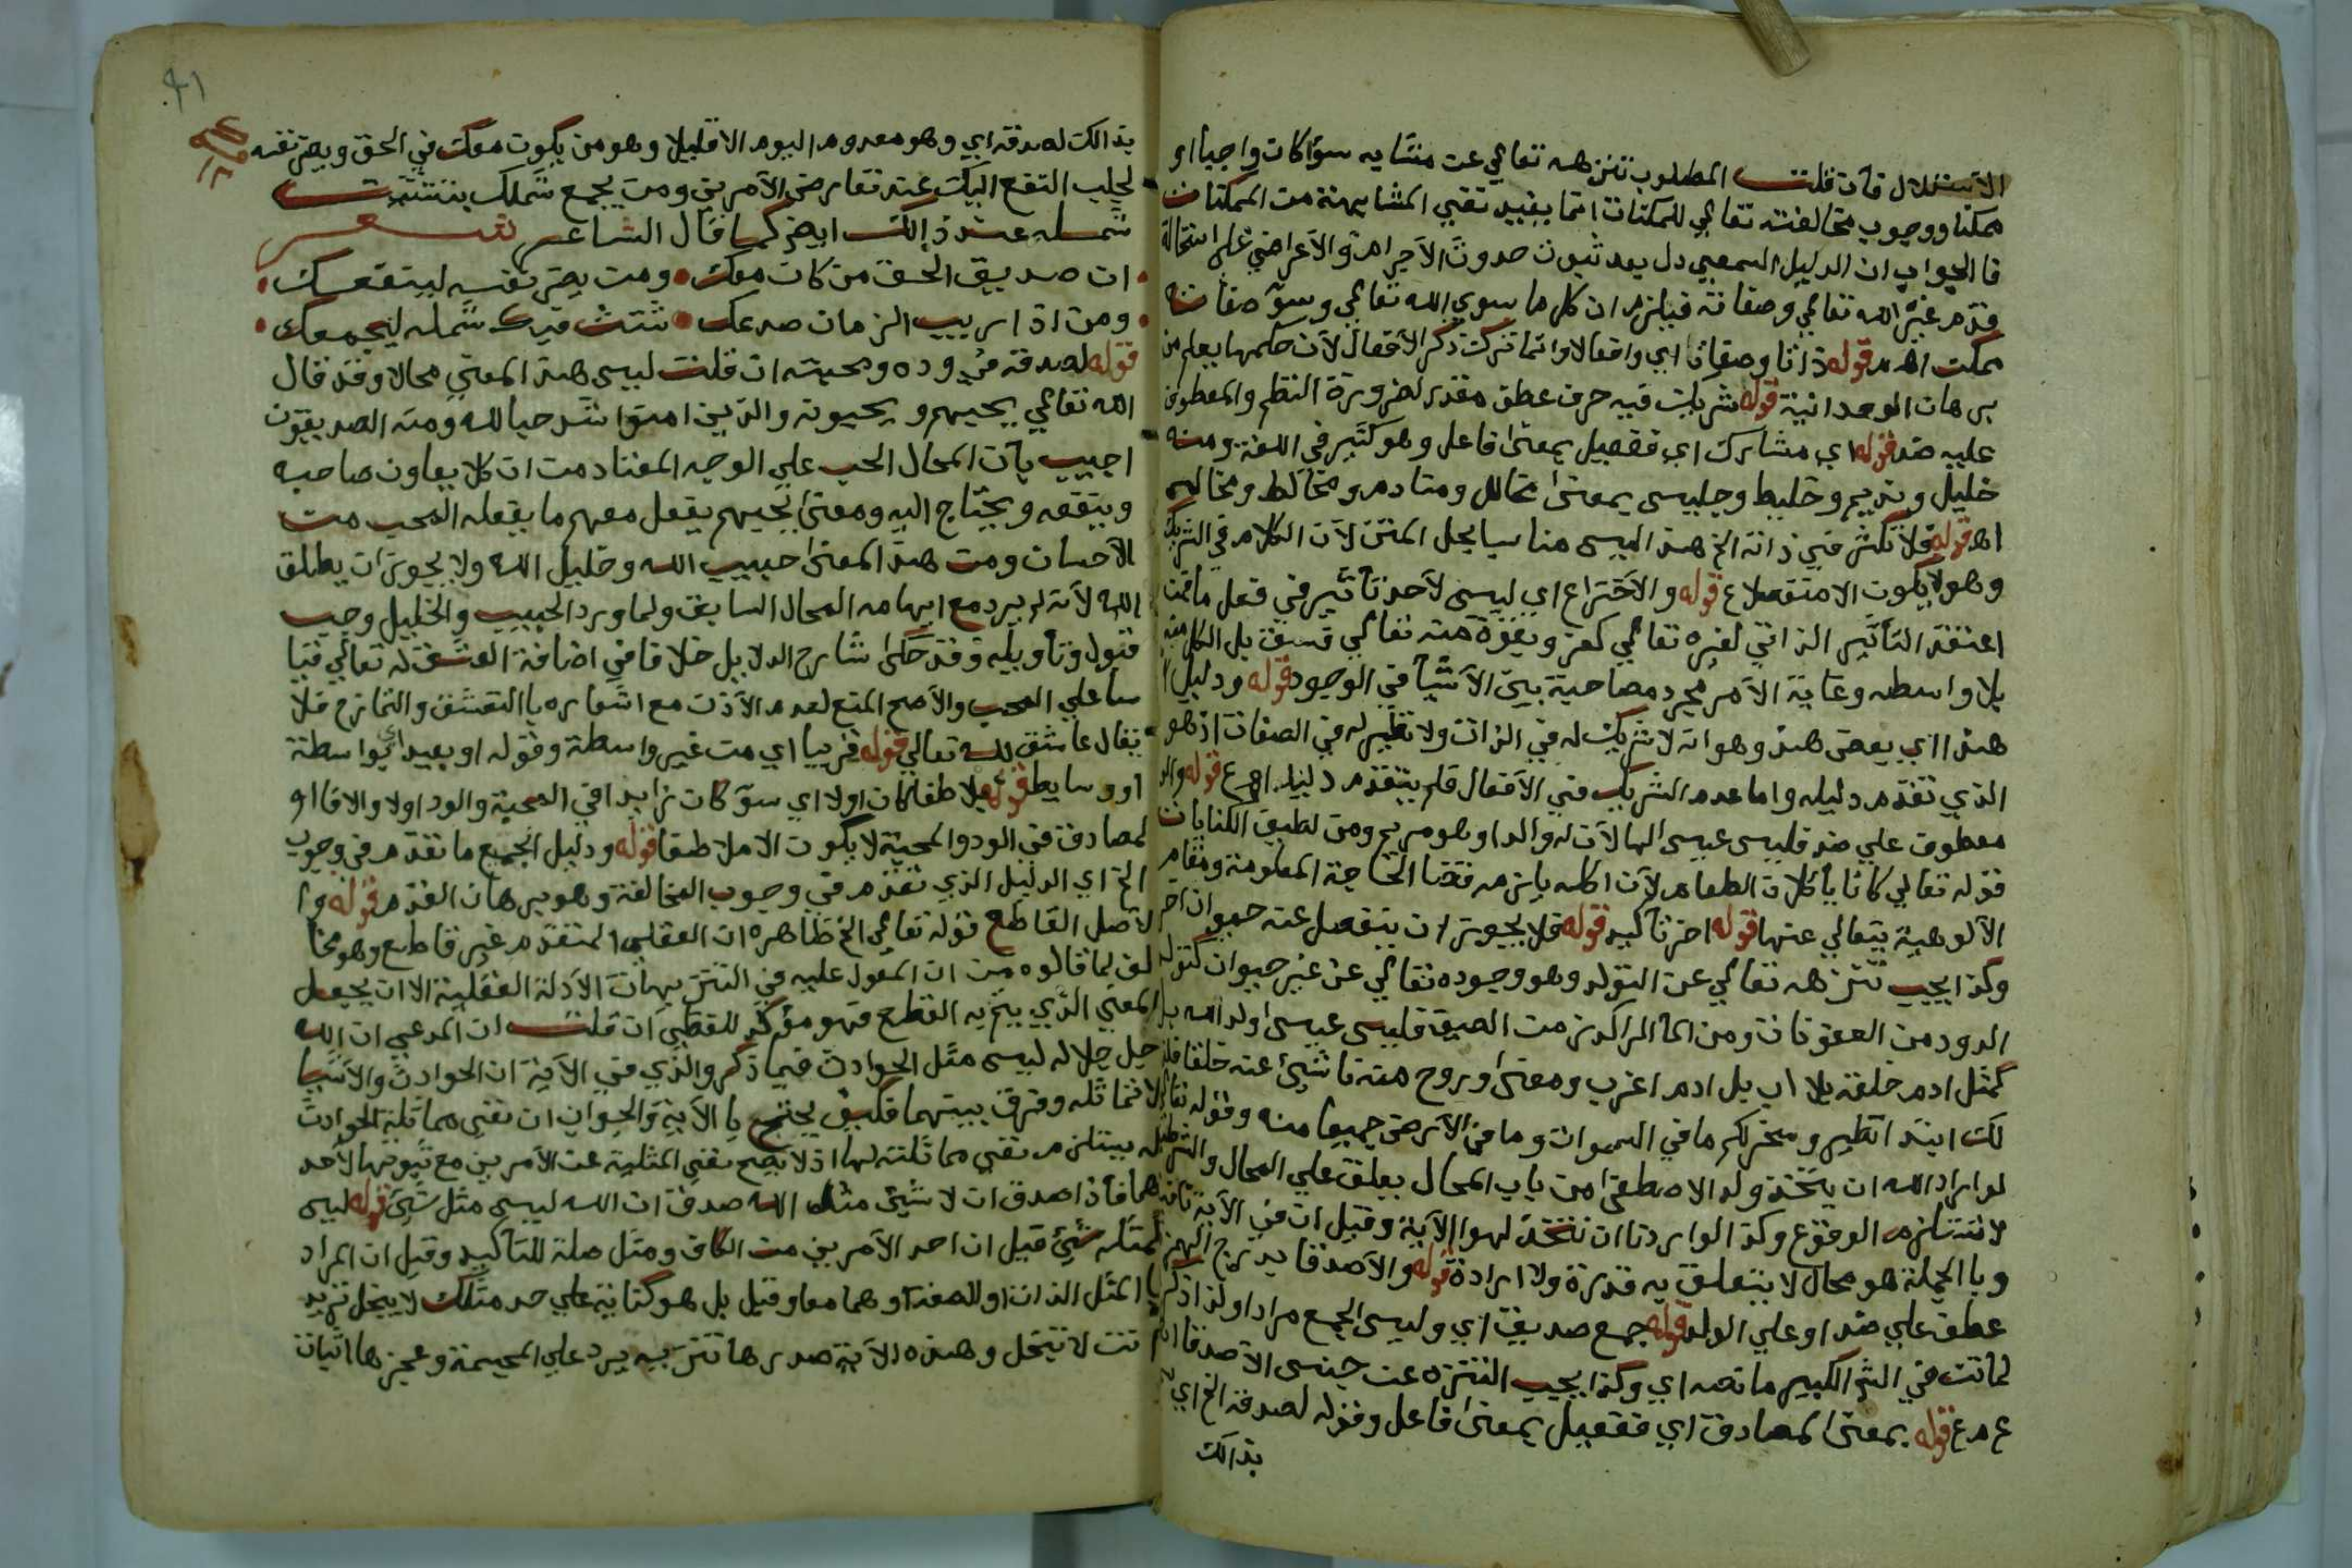 الاستدلال فان قلت المطلوب تنزهه تعالي عن مشابه سوآ كان واجبا او
ممكنا ووجوب مخالفته تعالي للممكنات انما يفيد نفي المشابهة من الممكنات
فالجواب ان الدليل السمعي دل بعد ثبوت حدوث الاجرام والاعراض علي استحالة
قدم غير الله تعالي وصفاته فيلزم ان كل ما سوي الله تعالي وسوي صفاته
ممكن اهـ قوله ذاتا وصفاتا اي وافعالا وانما تركت ذكر الافعال لان حكمها يعلم من
برهان الوحدانية قوله شريك فيه حرف عطف مقدر لضرورة النظم والمعطوف
عليه ضد قوله اي مشارك اي ففعيل بمعنى فاعل وهو كثير في اللغة ومنه
خليل ونديم وخليط وجليس بمعنى مخالل ومنادم ومخالط ومجالس
اهـ قوله فلا تكثر في ذاته الخ هذا ليس مناسبا لحل المتن لان الكلام في الشريك
وهو لا يكون الا منفصلا ع قوله والاختراع اي ليس لاحد تأثير في فعل ما فمن
اعتقد التأثير الذاتي لغيره تعالي كفر وبقوة منه تعالي فسق بل الكل منه
بلا واسطه وغاية الامر مجرد مصاحبة بين الاشيآ في الوجود قوله ودليل
هذا اي بعض هذ وهو انه لا شريك له في الذات ولا نظير له في الصفات اذ هو
الذي تقدم دليله واما عدم الشريك في الافعال فلم يتقدم دليله اهـ ع قوله والد
معطوف علي ضد فليس عيسى الها لان له والدا وهو مريم ومن لطيف الكنايات
قوله تعالي كانا يأكلان الطعام لان اكله يلزمه قضا الحاجة المعلومة ومقام
الالوهية يتعالي عنها قوله اخر تأكيد قوله فلا يجوز ان ينفصل عنه حيوان اخر
وكذا يجب تنزهه تعالي عن التولد وهو وجوده تعالي عن غير حيوان كتولد
الدود من العفونات ومن المآ الراكد زمن الصيف فليس عيسى ولد الله بل
كمثل ادم خلقه بلا اب بل ادم اغرب ومعنى وروح منه ناشئ عنه خلقا
لك ابتدا نظير وسخر لكم ما في السموات وما في الارض جميعا منه وقوله تعالي
لو اراد الله ان يتخذ ولدا لاصطفى من باب المحال يعلق علي المحال والشرطية
لا تستلزم الوقوع وكذا لو اردنا ان نتخذ لهوا الاية وقيل ان في الآية نافية
وبالجملة هو محال لا يتعلق به قدرة ولا ارادة قوله والاصدقا بدرج الهمز
عطف علي ضد او علي الولد قوله جمع صديق اي وليس الجمع مرادا ولذا ذكر
لمانت في الش الكبير ما نصه اي وكذا يجب التنزه عن جنس الاصدقا اهـ
ع م ع قوله بمعنى المصادق اي ففعيل بمعنى فاعل وقوله لصدقه الخ اي
بذالك
بذالك لصدقه اي وهو معدوم اليوم الا قليلا وهو من يكون معك في الحق ويضر نفسه
لجلب النفع اليك عند تعارض الامرين ومن يجمع شملك بتشتت
شمله عند ذالك ايضا كما قال الشاعر شعر
ان صديق الحق من كان معك ومن يضر نفسه لينفعك
ومن اذا ريب الزمان صدعك شتت فيك شمله ليجمعك
قوله لصدقه في وده ومحبته ان قلت ليس هذ المعني محالا وقد قال
الله تعالي يحبهم ويحبونه والذين امنوا اشد حبا لله ومنه الصديقون
اجيب بان المحال الحب علي الوجه المعتاد من ان كلا يعاون صاحبه
وينفعه ويحتاج اليه ومعنى يحبهم يفعل معهم ما يفعله المحب من
الاحسان ومن هذ المعنى حبيب الله وخليل الله ولا يجوز ان يطلق
الله لانه لم يرد مع ايهامه المحال السابق ولما ورد الحبيب والخليل وجب
قبوله وتأويله وقد حكى شارح الدلايل خلافا في اضافة العشق له تعالي قيا
سا علي المحب والاصح المنع لعدم الاذن مع اشعاره باالتعشق والتمازج فلا
يقال عاشق لله تعالي قوله قريبا اي من غير واسطة وقوله او بعيدا اي بواسطة
او وسايط قوله ملاطفا كان اولا اي سوآ كان زايدا في المحبة والود اولا والا فالو
لمصادق في الود والمحبة لا يكون الا ملاطفا قوله ودليل الجميع ما تقدم في وجوب
الخ اي الدليل الذي تقدم في وجوب المخالفة وهو برهان القدم قوله وا
لاصل القاطع قوله تعالي الخ ظاهره ان العقلي المتقدم غير قاطع وهو مخا
لف لما قالوه من ان المعول عليه في التنزيهات الادلة العقلية الا ان يجعل
المعني الذي يتم به القطع فهو مؤكد للقطعي ان قلت ان المدعي ان الله
جل جلاله ليس مثل الحوادث فيما ذكر والذي في الاية ان الحوادث والاشيا
لا تماثله وفرق بينهما فكيف يحتج بالاية والجواب ان نفي مماثلة الحوادث
له يستلزم نفي مماثلته لها اذ لا يصح نفي المثلية عن الامرين مع ثبوتها لاحد
هما فاذا صدق ان لا شيئ مثله الله صدق ان الله ليس مثل شيئ قوله ليس
كمثله شيئ قيل ان احد الامرين من الكاف ومثل صلة للتأكيد وقيل ان المراد
با المثل الذات او الصفة او هما معا وقيل بل هو كناية علي حد مثلك لا يبخل تريد
انت لا تبخل وهذه الاية صدرها تنزيه يرد علي المجسمة وعجزها اثبات